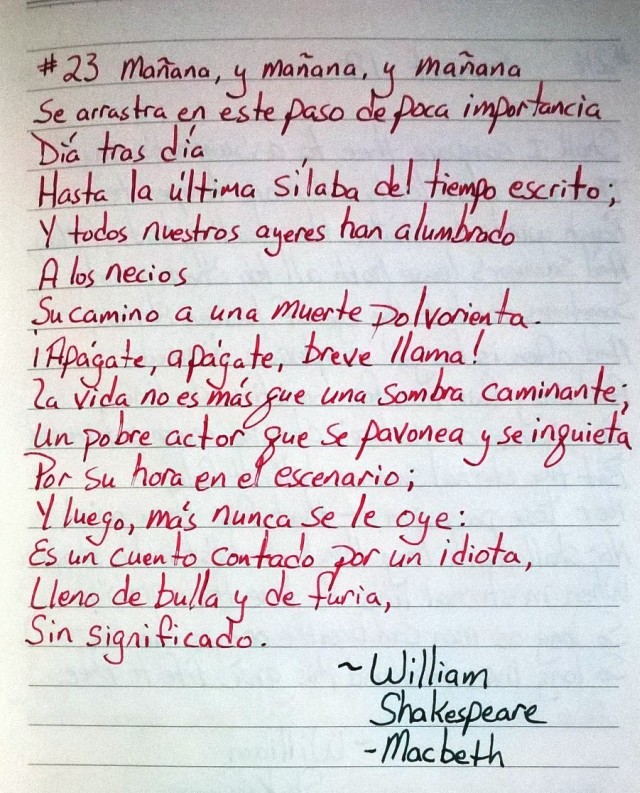 #23 Mañana, y mañana, y mañana
Se arrastra en este paso de poca importancia
Día tras día
Hasta la última sílaba del tiempo escrito;
Y todos nuestros ayeres han alumbrado
A los necios
Su camino a una muerte polvorienta.
¡Apágate, apágate, breve llama!
La vida no es más que una sombra caminante;
Un pobre actor que se pavonea y se inquieta
Por su hora en el escenario;
Y luego, más nunca se le oye:
Es un cuento contado por un idiota,
Lleno de bulla y de furia,
Sin significado.
~William
Shakespeare
-Macbeth